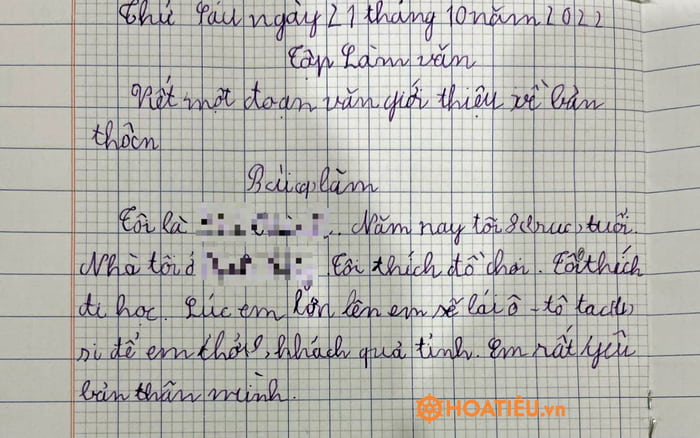 Thứ Sáu ngày 21 tháng 10 năm 2022
Tập Làm văn
Viết một đoạn văn giới thiệu về bản
thân
Bài làm
Tôi là .. Năm nay tôi 8 tuổi.
Nhà tôi ở . Tôi thích đồ chơi. Tôi thích
đi học. Lúc em lớn lên em sẽ lái ô-tô tac
si để em chở khách quả tỉnh. Em rất yêu
bản thân mình.
HOATIÊU.vn